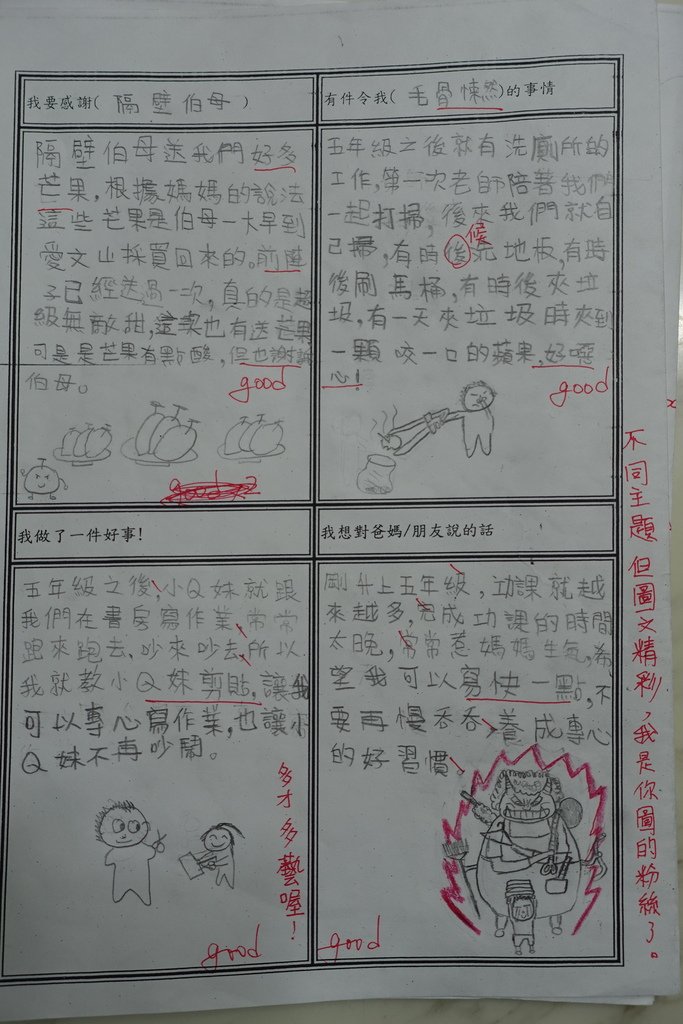 我要感謝( 隔壁伯母 )
隔壁伯母送我們好多
芒果,根據媽媽的說法
這些芒果是伯母一大早到
愛文山採買回來的。前陣
子已經送過一次,真的是超
級無敵甜,這次也有送芒果
可是是芒果有點酸,但也謝謝
伯母。
good
有件令我( 毛骨悚然 )的事情
五年級之後就有洗廁所的
工作,第一次老師陪著我們
一起打掃,後來我們就自
己掃,有時後洗地板,有時
候
後刷馬桶,有時後夾垃
圾,有一天夾垃圾時夾到
一顆咬一口的蘋果,好噁
心!
good
我做了一件好事!
五年級之後,小Q妹就跟
我們在書房寫作業,常常
跑來跑去、吵來吵去,所以
我就教小Q妹剪貼,讓我
可以專心寫作業,也讓小
Q妹不再吵鬧。
多才多藝喔!
good
我想對爸媽/朋友說的話
剛升上五年級,功課就越
來越多,完成功課的時間
太晚,常常惹媽媽生氣,希
望我可以寫快一點,不
要再慢吞吞,養成專心
的好習慣。
good
不同主題但圖文精彩,我是你圖的粉絲了。